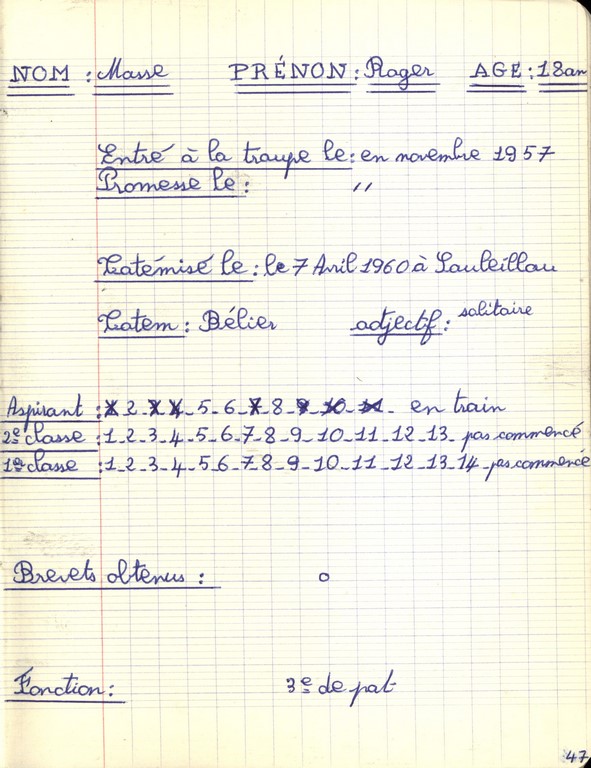 NOM : Masse PRÉNON : Roger AGE : 18an
Entré à la troupe le : en novembre 1957
Promesse le : "
Totémisé le : le 7 Avril 1960 à Sauleillou
Totem : Bélier adjectif : solitaire
Aspirant : 1 2 - 3 4 - 5 - 6 - 7 - 8 - 9 - 10 - 11 - en train
2e classe : 1 - 2 - 3 - 4 - 5 - 6 - 7 - 8 - 9 - 10 - 11 - 12 - 13 - pas commencé
1er classe : 1 - 2 - 3 - 4 - 5 - 6 - 7 - 8 - 9 - 10 - 11 - 12 - 13 - 14 - pas commencé
Brevets obtenus : o
Fonction : 3e de pat
47